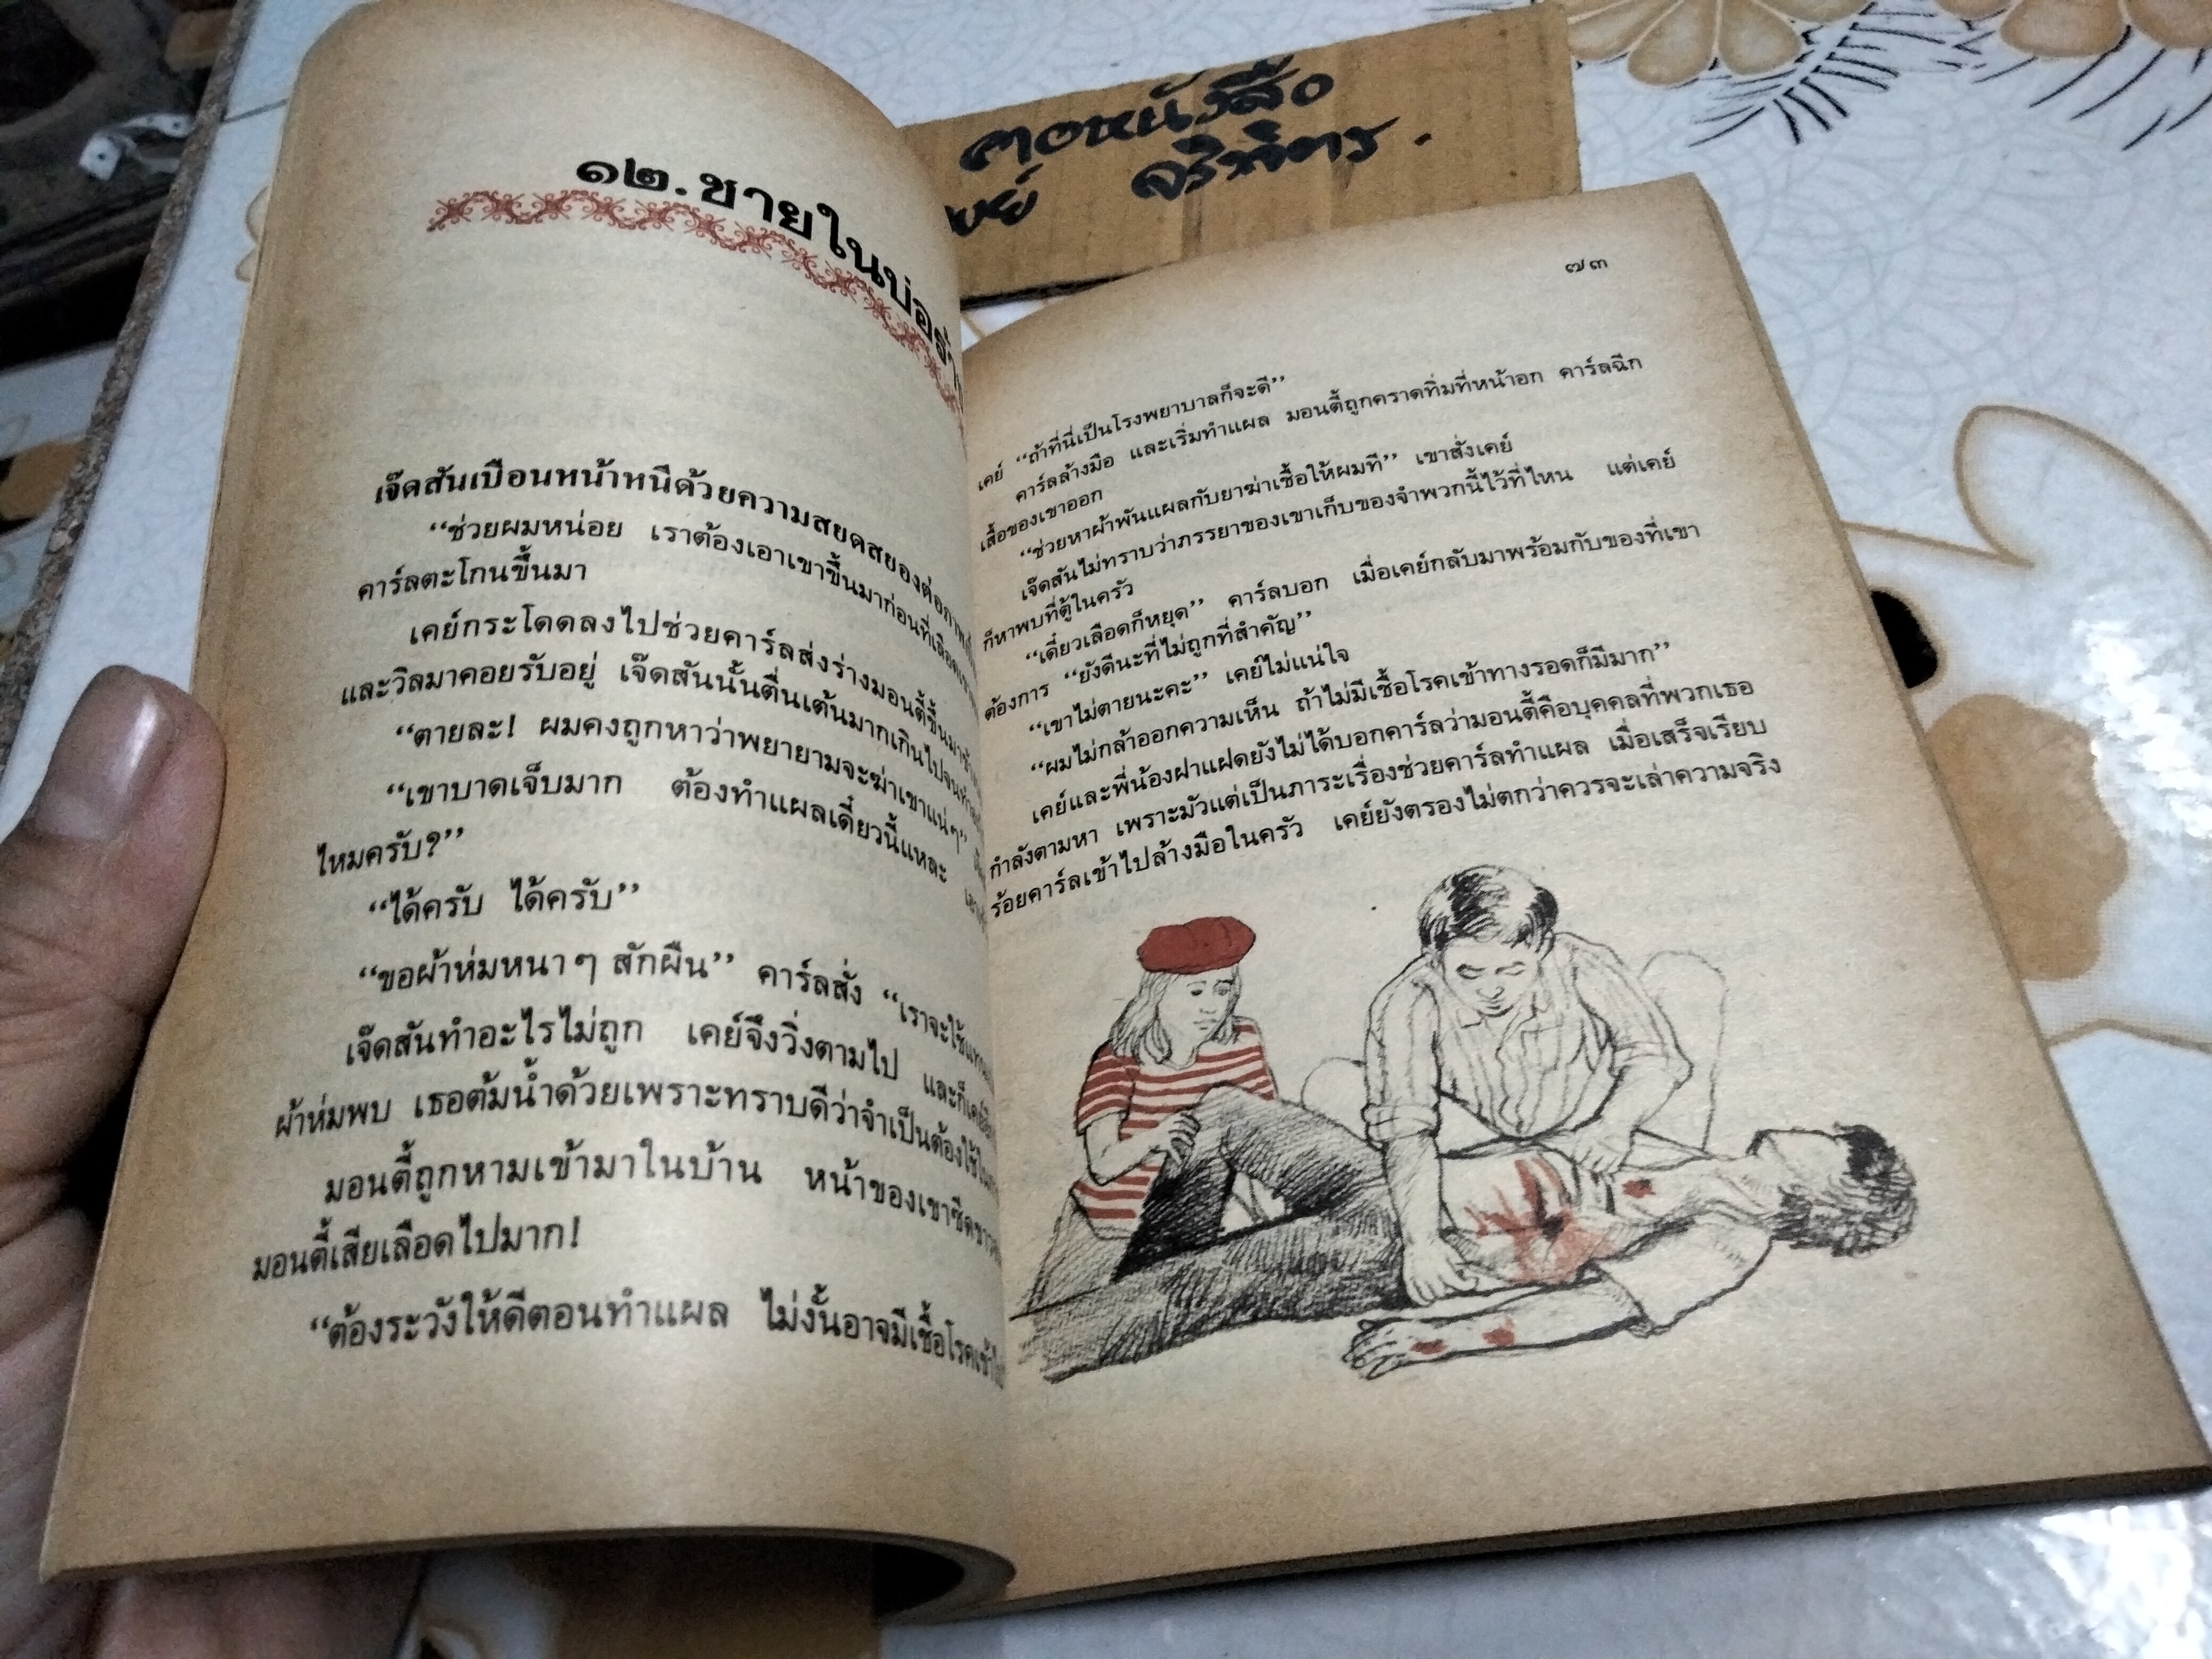 คอหนังสือ
จริพัตร.
๑๒. ชายในบ่อร้าง
เจ๊ดสันเบือนหน้าหนีด้วยความสยดสยองต่อภาพ
“ช่วยผมหน่อย เราต้องเอาเขาขึ้นมาก่อนที่เลือด
คาร์ลตะโกนขึ้นมา
เคย์กระโดดลงไปช่วยคาร์ลส่งร่างมอนตี้ขึ้นมา
และวิลมาคอยรับอยู่ เจ๊ดสันนั้นตื่นเต้นมากเกินไปจน
“ตายละ! ผมคงถูกหาว่าพยายามจะฆ่าเขาแน่ๆ”
“เขาบาดเจ็บมาก ต้องทำแผลเดี๋ยวนี้แหละ
ไหมครับ?”
“ได้ครับ ได้ครับ”
“ขอผ้าห่มหนาๆ สักผืน” คาร์ลสั่ง “เราจะใช้แทน
เจ๊ดสันทำอะไรไม่ถูก เคย์จึงวิ่งตามไป และก็
ผ้าห่มพบ เธอต้มน้ำด้วยเพราะทราบดีว่าจำเป็นต้องใช้
มอนตี้ถูกหามเข้ามาในบ้าน หน้าของเขาซีดขาว
มอนตี้เสียเลือดไปมาก!
“ต้องระวังให้ดีตอนทำแผล ไม่งั้นอาจมีเชื้อโรคเข้า
๗๓
เคย์ “ถ้าที่นี่เป็นโรงพยาบาลก็จะดี”
คาร์ลล้างมือ และเริ่มทำแผล มอนตี้ถูกคราดทิ่มที่หน้าอก คาร์ลฉีก
เสื้อของเขาออก
“ช่วยหาผ้าพันแผลกับยาฆ่าเชื้อให้ผมที” เขาสั่งเคย์
เจ๊ดสันไม่ทราบว่าภรรยาของเขาเก็บของจำพวกนี้ไว้ที่ไหน แต่เคย์
ก็หาพบที่ตู้ในครัว
“เดี๋ยวเลือดก็หยุด” คาร์ลบอก เมื่อเคย์กลับมาพร้อมกับของที่เขา
ต้องการ “ยังดีนะที่ไม่ถูกที่สำคัญ”
“เขาไม่ตายนะคะ” เคย์ไม่แน่ใจ
“ผมไม่กล้าออกความเห็น ถ้าไม่มีเชื้อโรคเข้าทางรอดก็มีมาก”
เคย์และพี่น้องฝาแฝดยังไม่ได้บอกคาร์ลว่ามอนตี้คือบุคคลที่พวกเธอ
กำลังตามหา เพราะมัวแต่เป็นภาระเรื่องช่วยคาร์ลทำแผล เมื่อเสร็จเรียบ
ร้อยคาร์ลเข้าไปล้างมือในครัว เคย์ยังตรองไม่ตกว่าควรจะเล่าความจริง